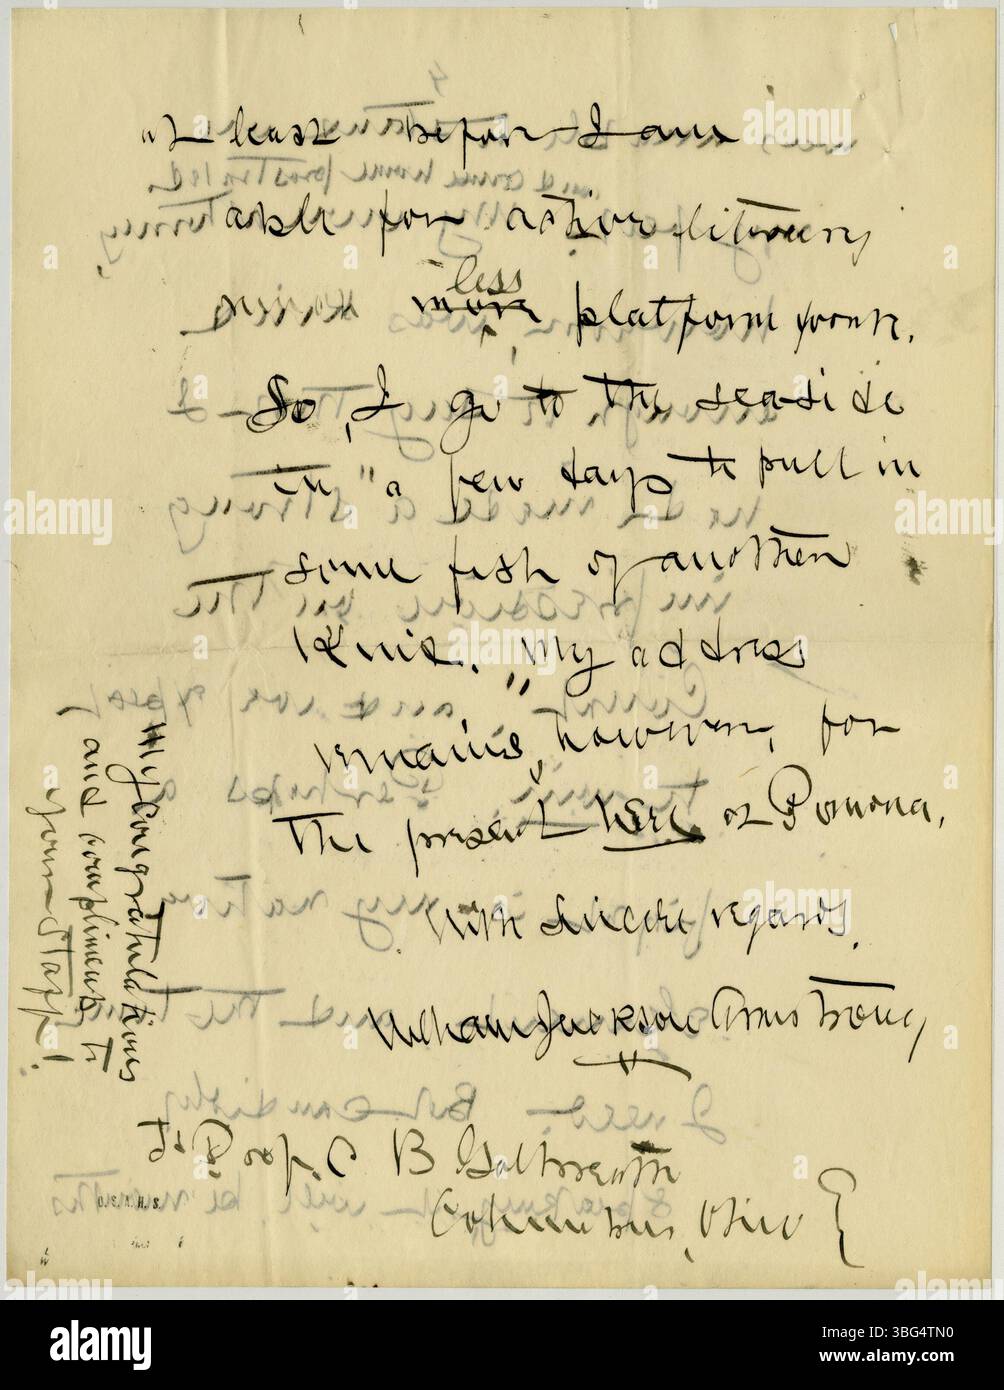 at least before I am
able for active literary
and more less platform work.
So, I go to the seaside
in "a few days to pull in
some fish of another
kind." My address
remains, however, for
the present here at Pomona.
With sincere regards,
William Jackson Armstrong
To Prof. C B Galbreath
Columbus, Ohio }
My Congratulations
and compliments to
your Staff!
O.S.A.H.S.
alamy
Image ID: 3BG4TN0
www.alamy.com